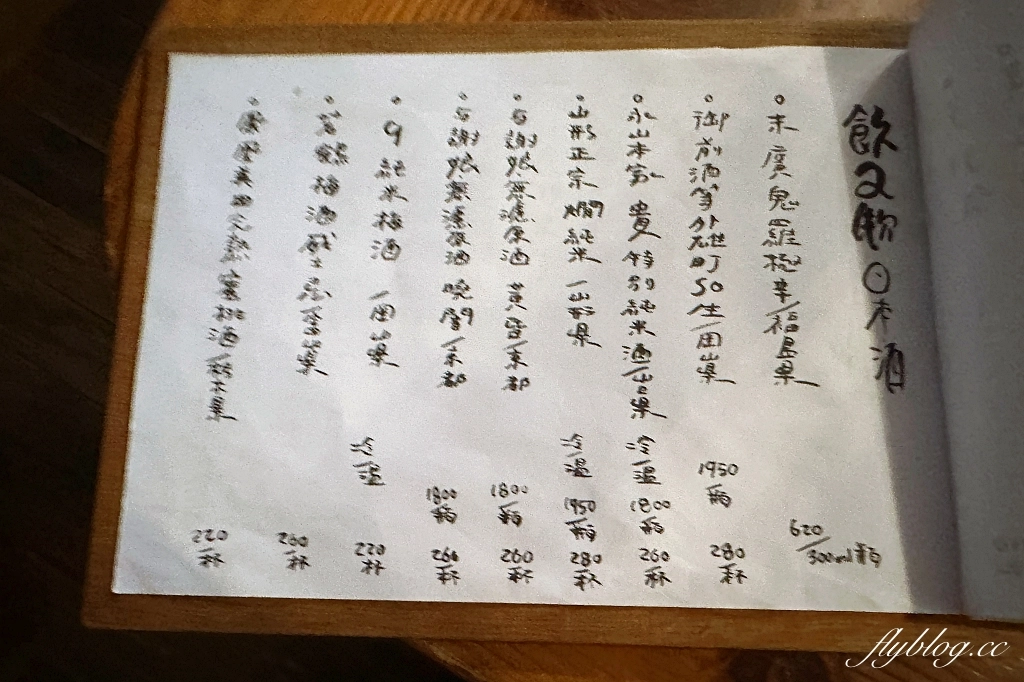 飲み物日本酒
末廣鬼羅極辛/福島県
620/300ml瓶
御前酒等外雄町50生/岡山県
1950/瓶
280/杯
永山本家 貴 特別純米酒/山口県
冷 温
1800/瓶
260/杯
山形正宗 燗純米 /山形県
冷 温
1950/瓶
280/杯
与謝娘無濾原酒 黃昏/京都
1800/瓶
260/杯
与謝娘無濾原酒 晚闇/京都
1800/瓶
260/杯
9 純米梅酒 /岡山県
冷 温
220/杯
梅酒
260/杯
蜜桃酒/栃木県
220/杯
flyblog.cc